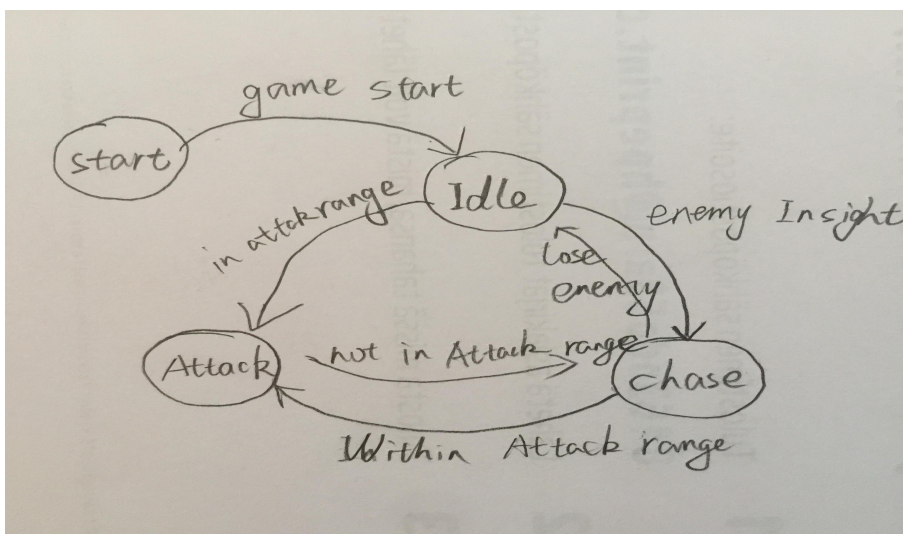 game start
start
Idle
in attak range
enemy Insight
Lose
enemy
Attack
not in Attack range
chase
Within Attack range